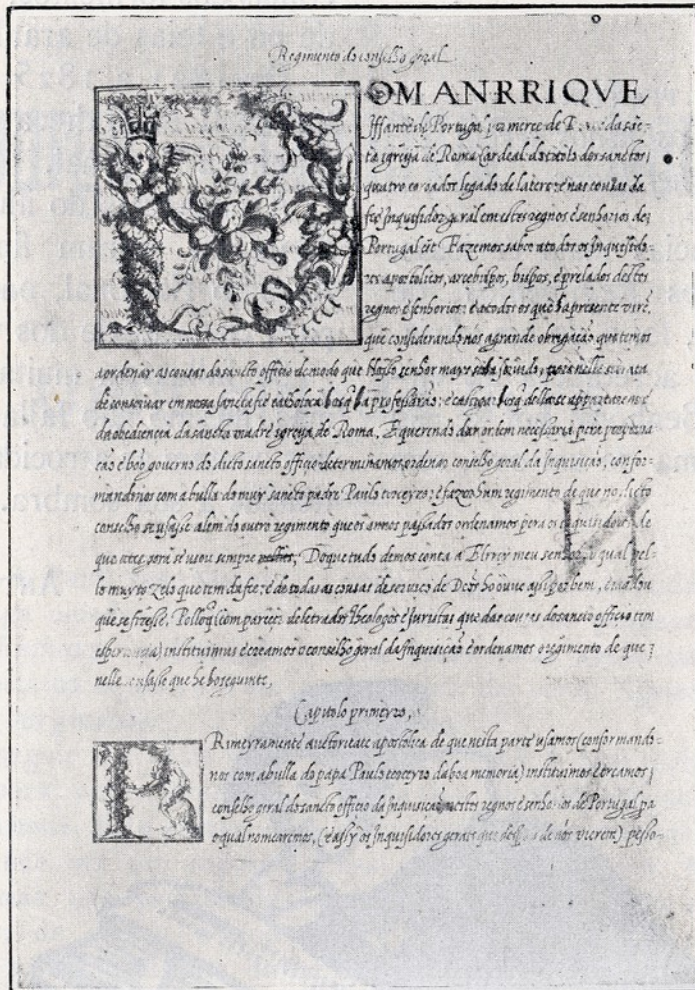 Regimento do conselho geral
DOM ANRRIQVE
Iffante de Portugal per merce de da sãc-
ta igreja de Roma Cardeal do titolo dos sanctos
quatro coroados legado de latere: e nas cousas da
fee Inquisidor geral em estes regnos e senhorios de
Portugal etc Fazemos saber a todos os Inquisido-
res apostolicos, arcebispos, bispos, e prelados destes
regnos e senhorios: e a todos os que ha presente virē,
que considerando nós a grande obrigação que temos
a ordenar as cousas do sancto officio de modo que Nosso senhor mays seja servido, e
de conservar em nossa sancta fee catholica hos q̃ ha professarão: e castigar hos q̃ della se appartarem e
da obediencia da sancta madre igreja de Roma, E querendo dar ordem necessaria pera
cão e boõ governo do dicto sancto officio determinamos ordenar conselho geral da Inquisição, confor-
mandonos com a bulla do muy sancto padre Paulo terceyro: e fazer hum regimento de que no dicto
conselho se usasse alem do outro regimento que os annos passados ordenamos pera os Inquisidores de
que atee gora se usou sempre Do que tudo demos conta a Elrrey meu senhor, o qual pel-
lo muyto zelo que tem da fee: e de todas as cousas de serviço de Deos ho ouve assi por bem, e mandou
que se fizesse. Pollo q̃ com parecer de letrados theologos e juristas que das cousas do sancto officio tem
esperiencia) instituimus e creamos o conselho geral da Inquisição e ordenamos o regimento de que
nelle se usasse que he ho seguinte,
Capitolo primeyro,
PRimeyramente auctoritate apostolica de que nesta parte usamos (conformando-
nos com a bulla do papa Paulo terceyro da boa memoria) instituimos e creamos
conselho geral do sancto officio da Inquisição nestes regnos e senhorios de Portugal pa
o qual nomearemos, (e assy os Inquisidores gerais que despois de nós vierem) pesso-